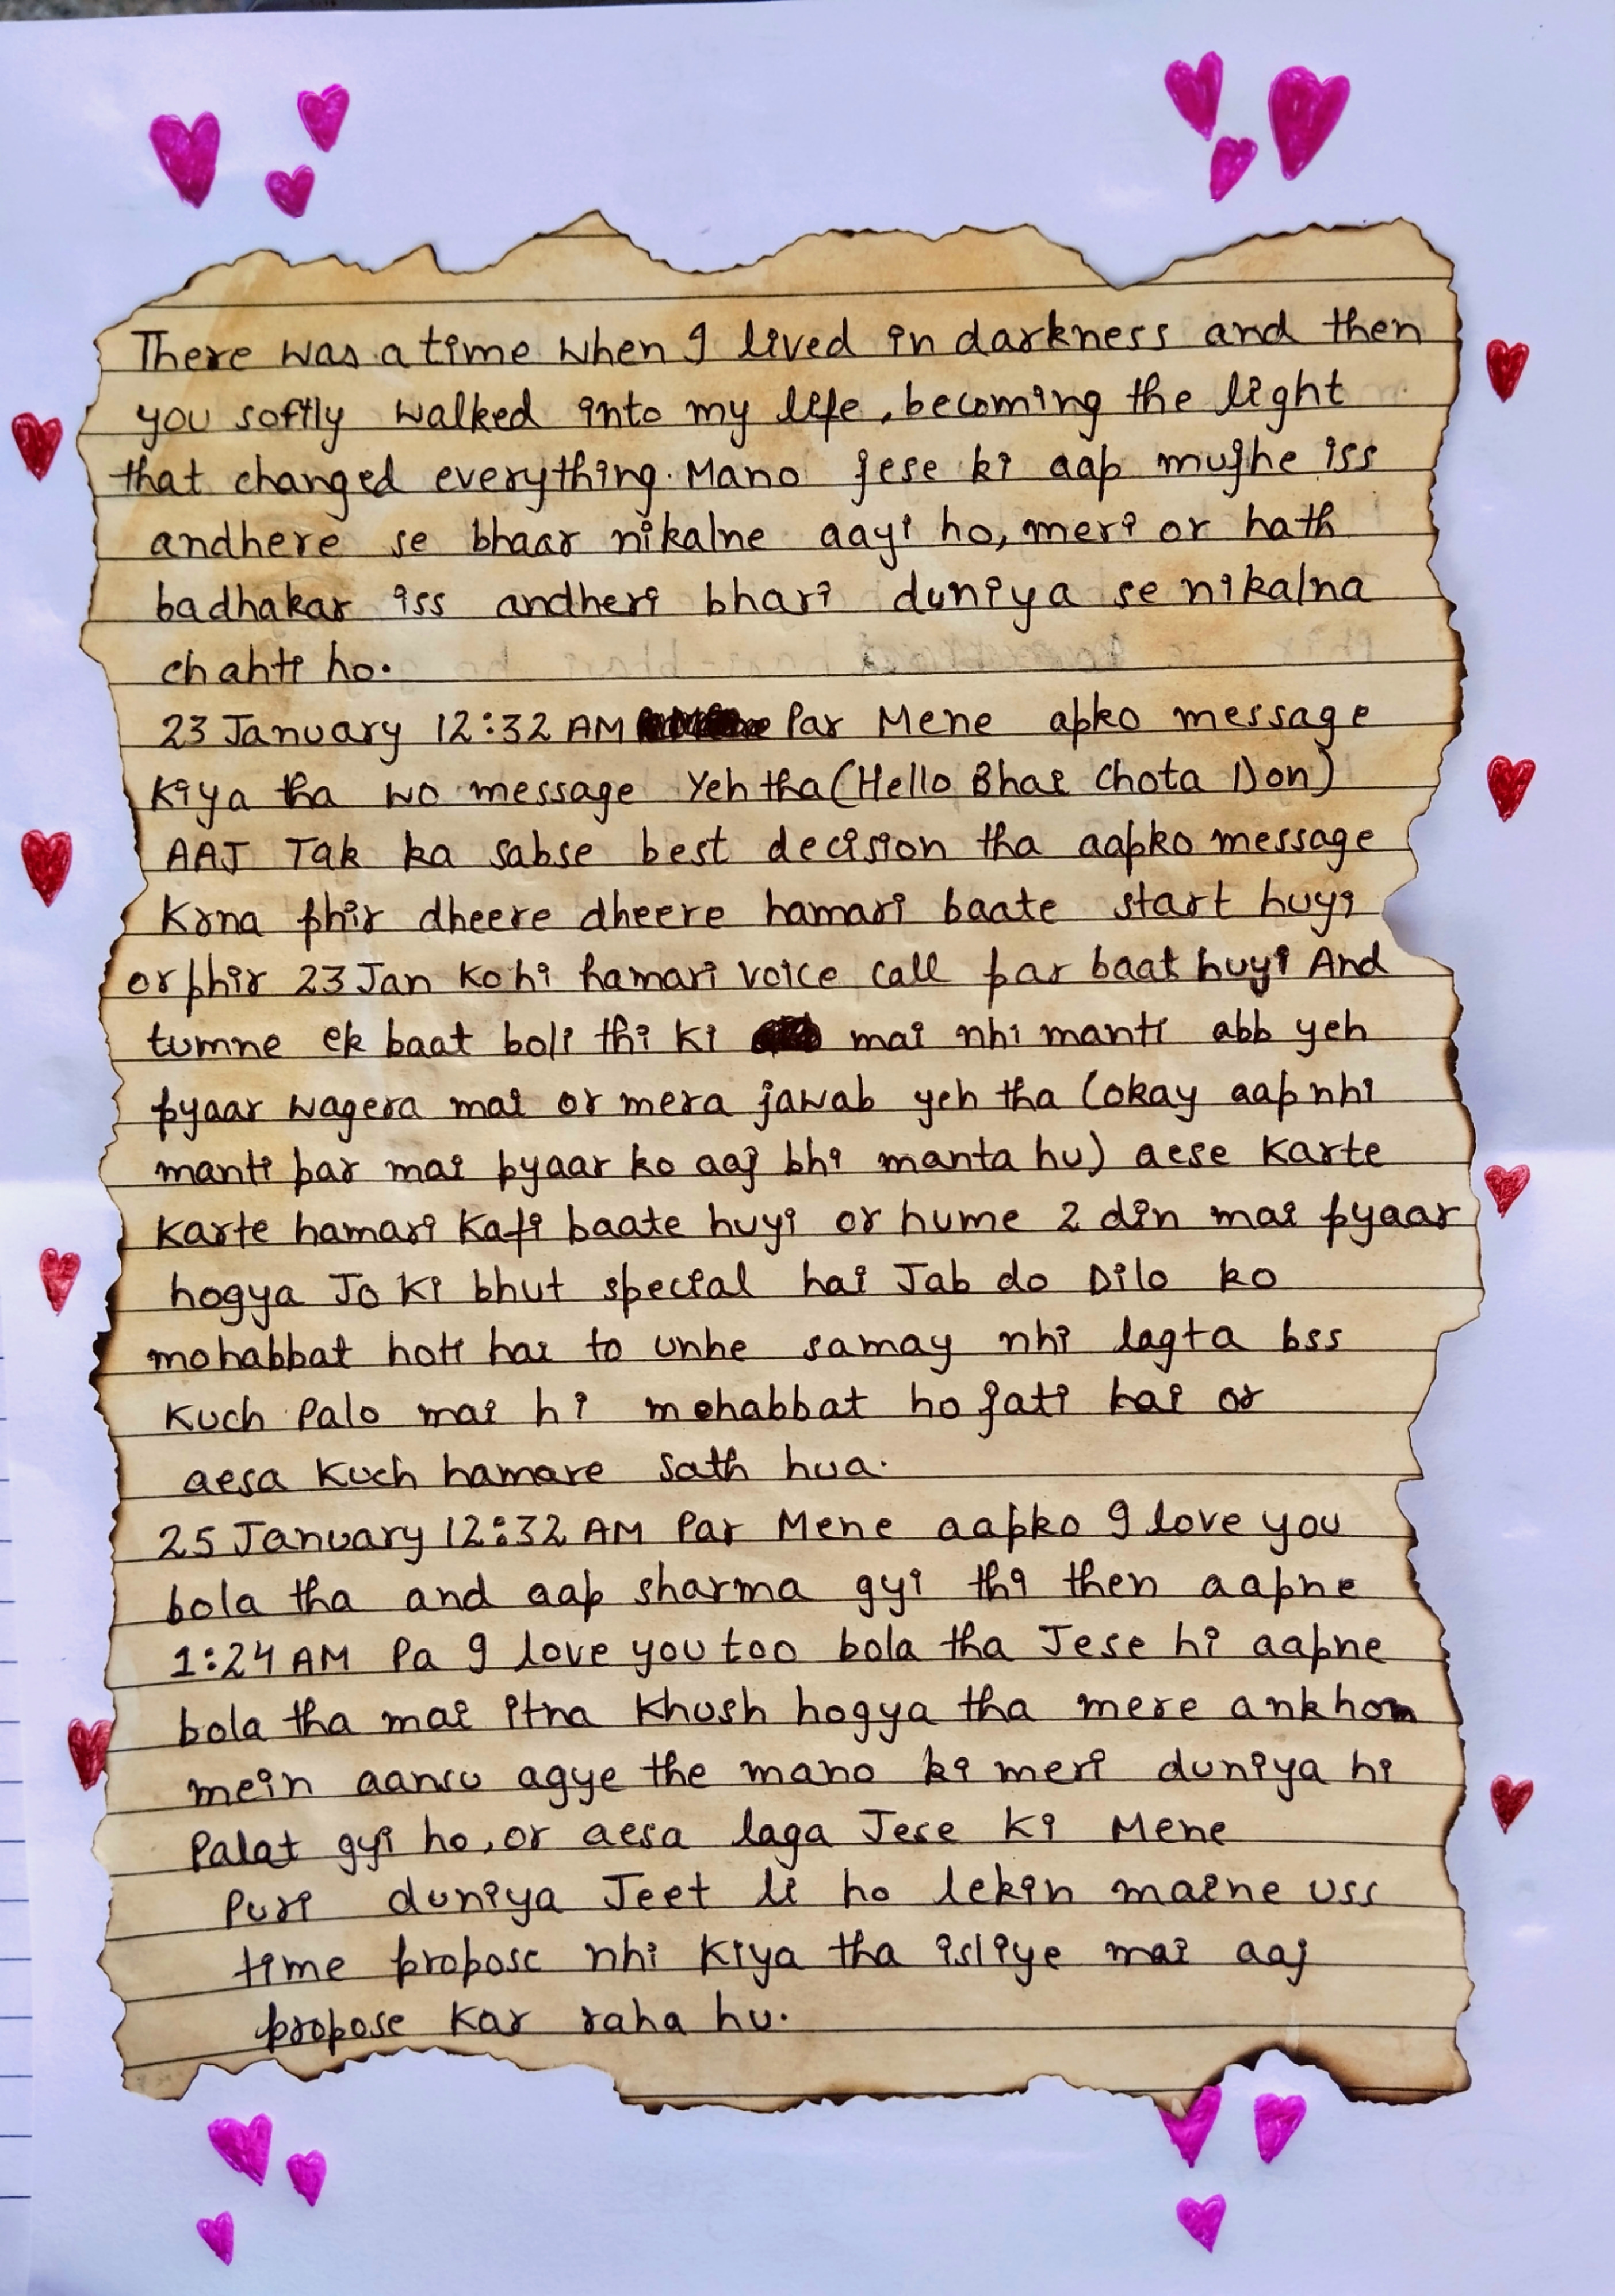 There was a time when I lived in darkness and then
you softly walked into my life, becoming the light
that changed everything. Mano jese ki aap mujhe iss
andhere se bhaar nikalne aayi ho, meri or hath
badhakar iss andheri bhari duniya se nikalna
chahti ho.
23 January 12:32 AM Par Mene apko message
kiya tha wo message Yeh tha (Hello Bhai Chota Don)
AAJ Tak ka sabse best decision tha aapko message
Krna phir dheere dheere hamari baate start huyi
or phir 23 Jan Ko hi hamari voice call par baat huyi And
tumne ek baat boli thi ki mai nhi manti abb yeh
pyaar wagera mai or mera jawab yeh tha (okay aap nhi
manti par mai pyaar ko aaj bhi manta hu) aese karte
karte hamari Kafi baate huyi or hume 2 din mai pyaar
hogya Jo Ki bhut special hai Jab do Dilo ko
mohabbat hoti hai to unhe samay nhi lagta bss
Kuch Palo mai hi mohabbat ho jati hai or
aesa Kuch hamare sath hua.
25 January 12:32 AM Par Mene aapko I love you
bola tha and aap sharma gyi thi then aapne
1:24 AM Pa I love you too bola tha Jese hi aapne
bola tha mai itna Khush hogya tha mere ankhon
mein aansu agye the mano ki meri duniya hi
Palat gyi ho, or aesa laga Jese Ki Mene
Puri duniya Jeet li ho lekin maine uss
time propose nhi Kiya tha isliye mai aaj
propose Kar raha hu.